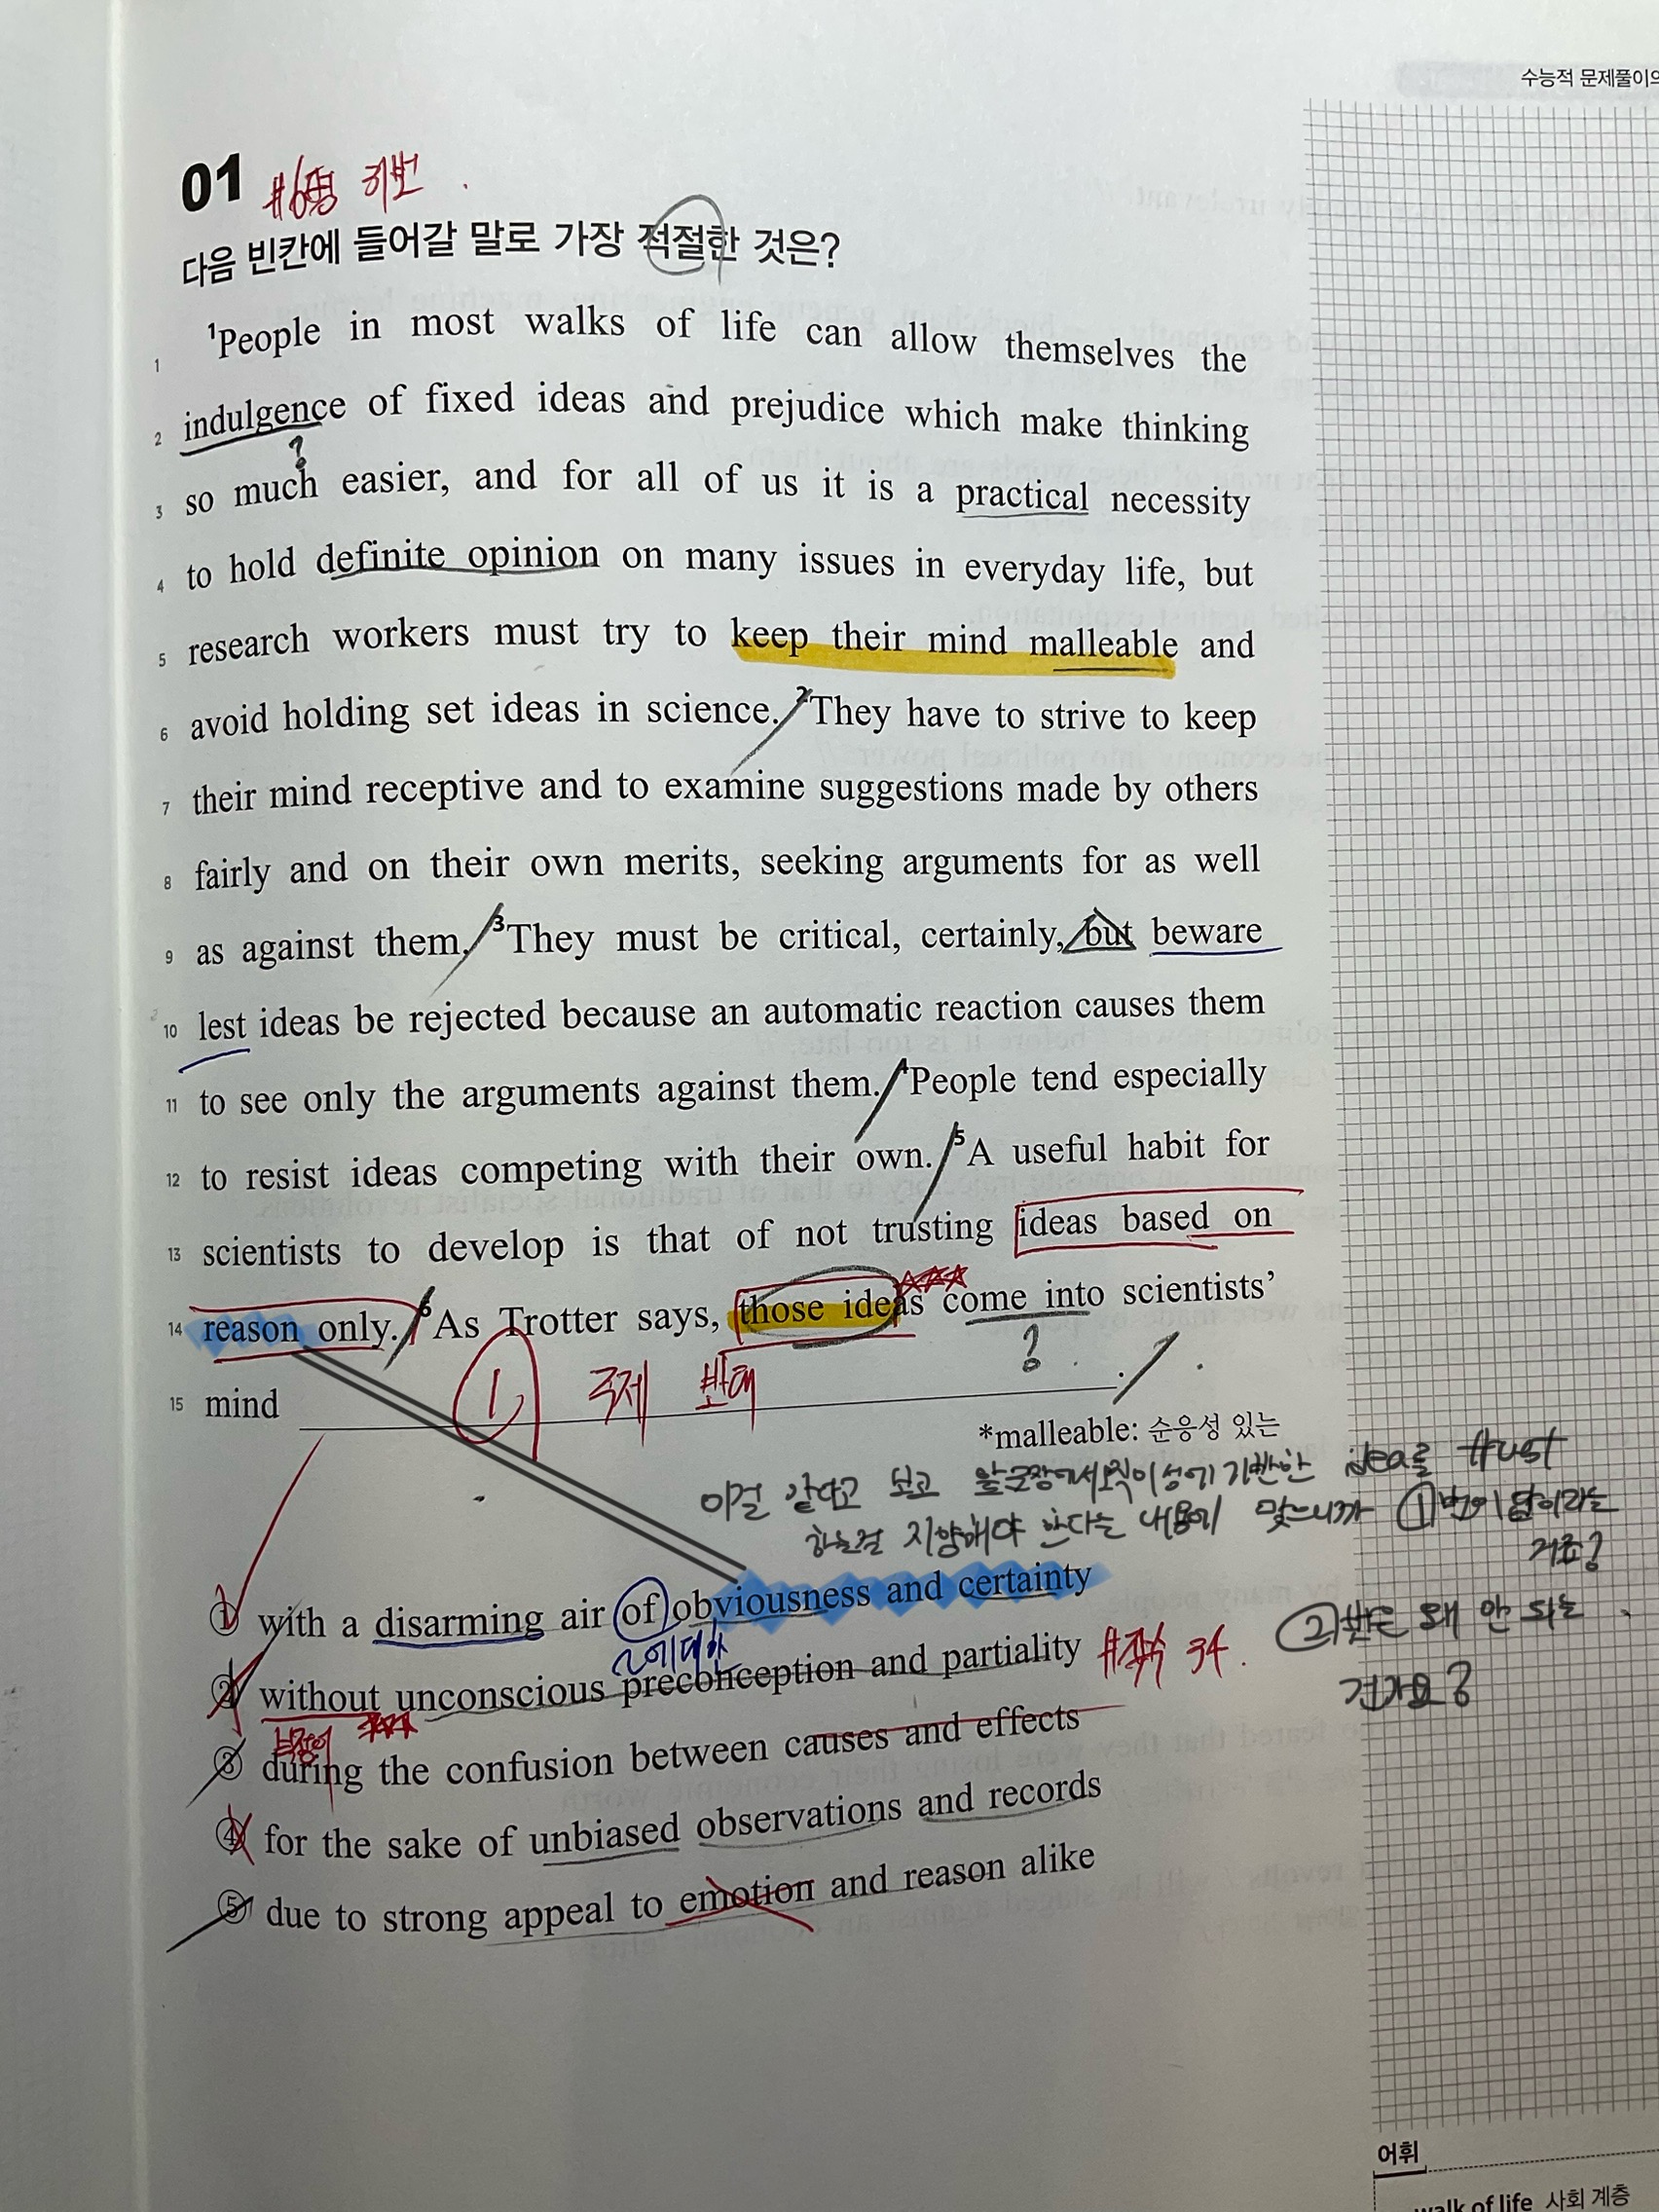 수능적 문제풀이의
01 #6평 31번.
다음 빈칸에 들어갈 말로 가장 적절한 것은?
1 ¹People in most walks of life can allow themselves the
2 indulgence of fixed ideas and prejudice which make thinking
?
3 so much easier, and for all of us it is a practical necessity
4 to hold definite opinion on many issues in everyday life, but
5 research workers must try to keep their mind malleable and
6 avoid holding set ideas in science. ²They have to strive to keep
7 their mind receptive and to examine suggestions made by others
8 fairly and on their own merits, seeking arguments for as well
9 as against them. ³They must be critical, certainly, but beware
10 lest ideas be rejected because an automatic reaction causes them
11 to see only the arguments against them. ⁴People tend especially
12 to resist ideas competing with their own. ⁵A useful habit for
13 scientists to develop is that of not trusting ideas based on
14 reason only. ⁶As Trotter says, those ideas come into scientists’
?
① 주제 반대
15 mind .
*malleable: 순응성 있는
이걸 같다고 보고 앞문장에서 오직 이성에 기반한 idea를 trust
하는걸 지양해야 한다는 내용이 맞으니까 ①번이 답이라는
거죠?
① with a disarming air of obviousness and certainty
~에 대한
②번은 왜 안 되는
건가요?
② without unconscious preconception and partiality
부정어
③ during the confusion between causes and effects
④ for the sake of unbiased observations and records
⑤ due to strong appeal to emotion and reason alike
어휘
walk of life 사회 계층